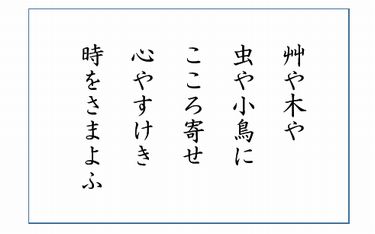 艸や木や
虫や小鳥に
こころ寄せ
心やすけき
時をさまよふ